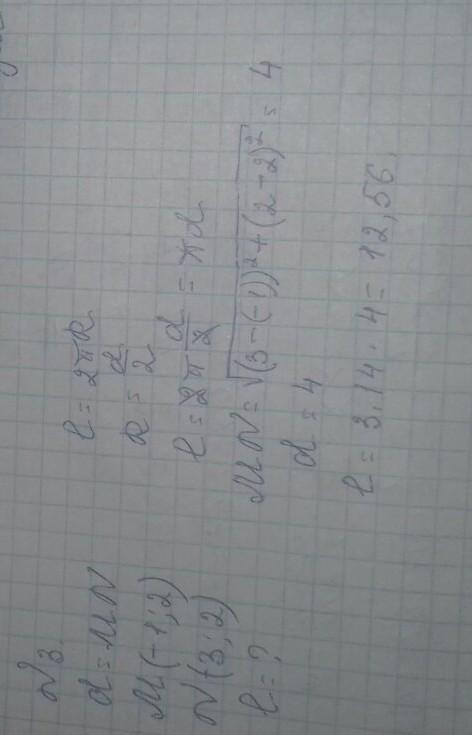 № 3.
d = MN
M(-1; 2)
N(3; 2)
l = ?
l = 2πR
R = d/2
l = 2π d/2 = πd
MN = √(3-(-1))² + (2-2)² = 4
d = 4
l = 3,14 · 4 = 12,56.